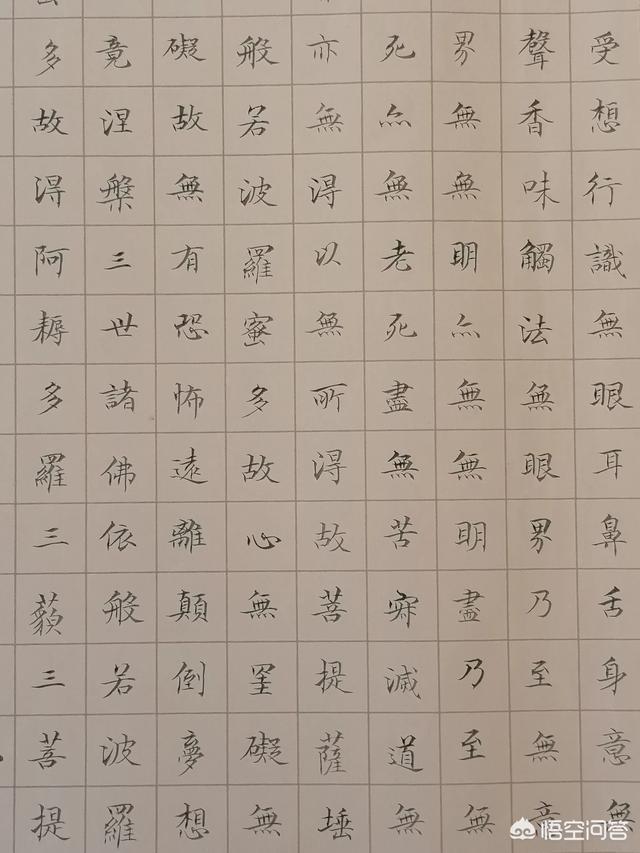 受想行識無眼耳鼻舌身意無
聲香味觸法無眼界乃至無意
界無無明亦無無明盡乃至無
死亦無老死盡無苦滅道無
亦無得以無所得故菩提薩埵
般若波羅蜜多故心無罣礙無
礙故無有恐怖遠離顛倒夢想
竟涅槃三世諸佛依般若波羅
多故得阿耨多羅三藐三菩提
悟空问答